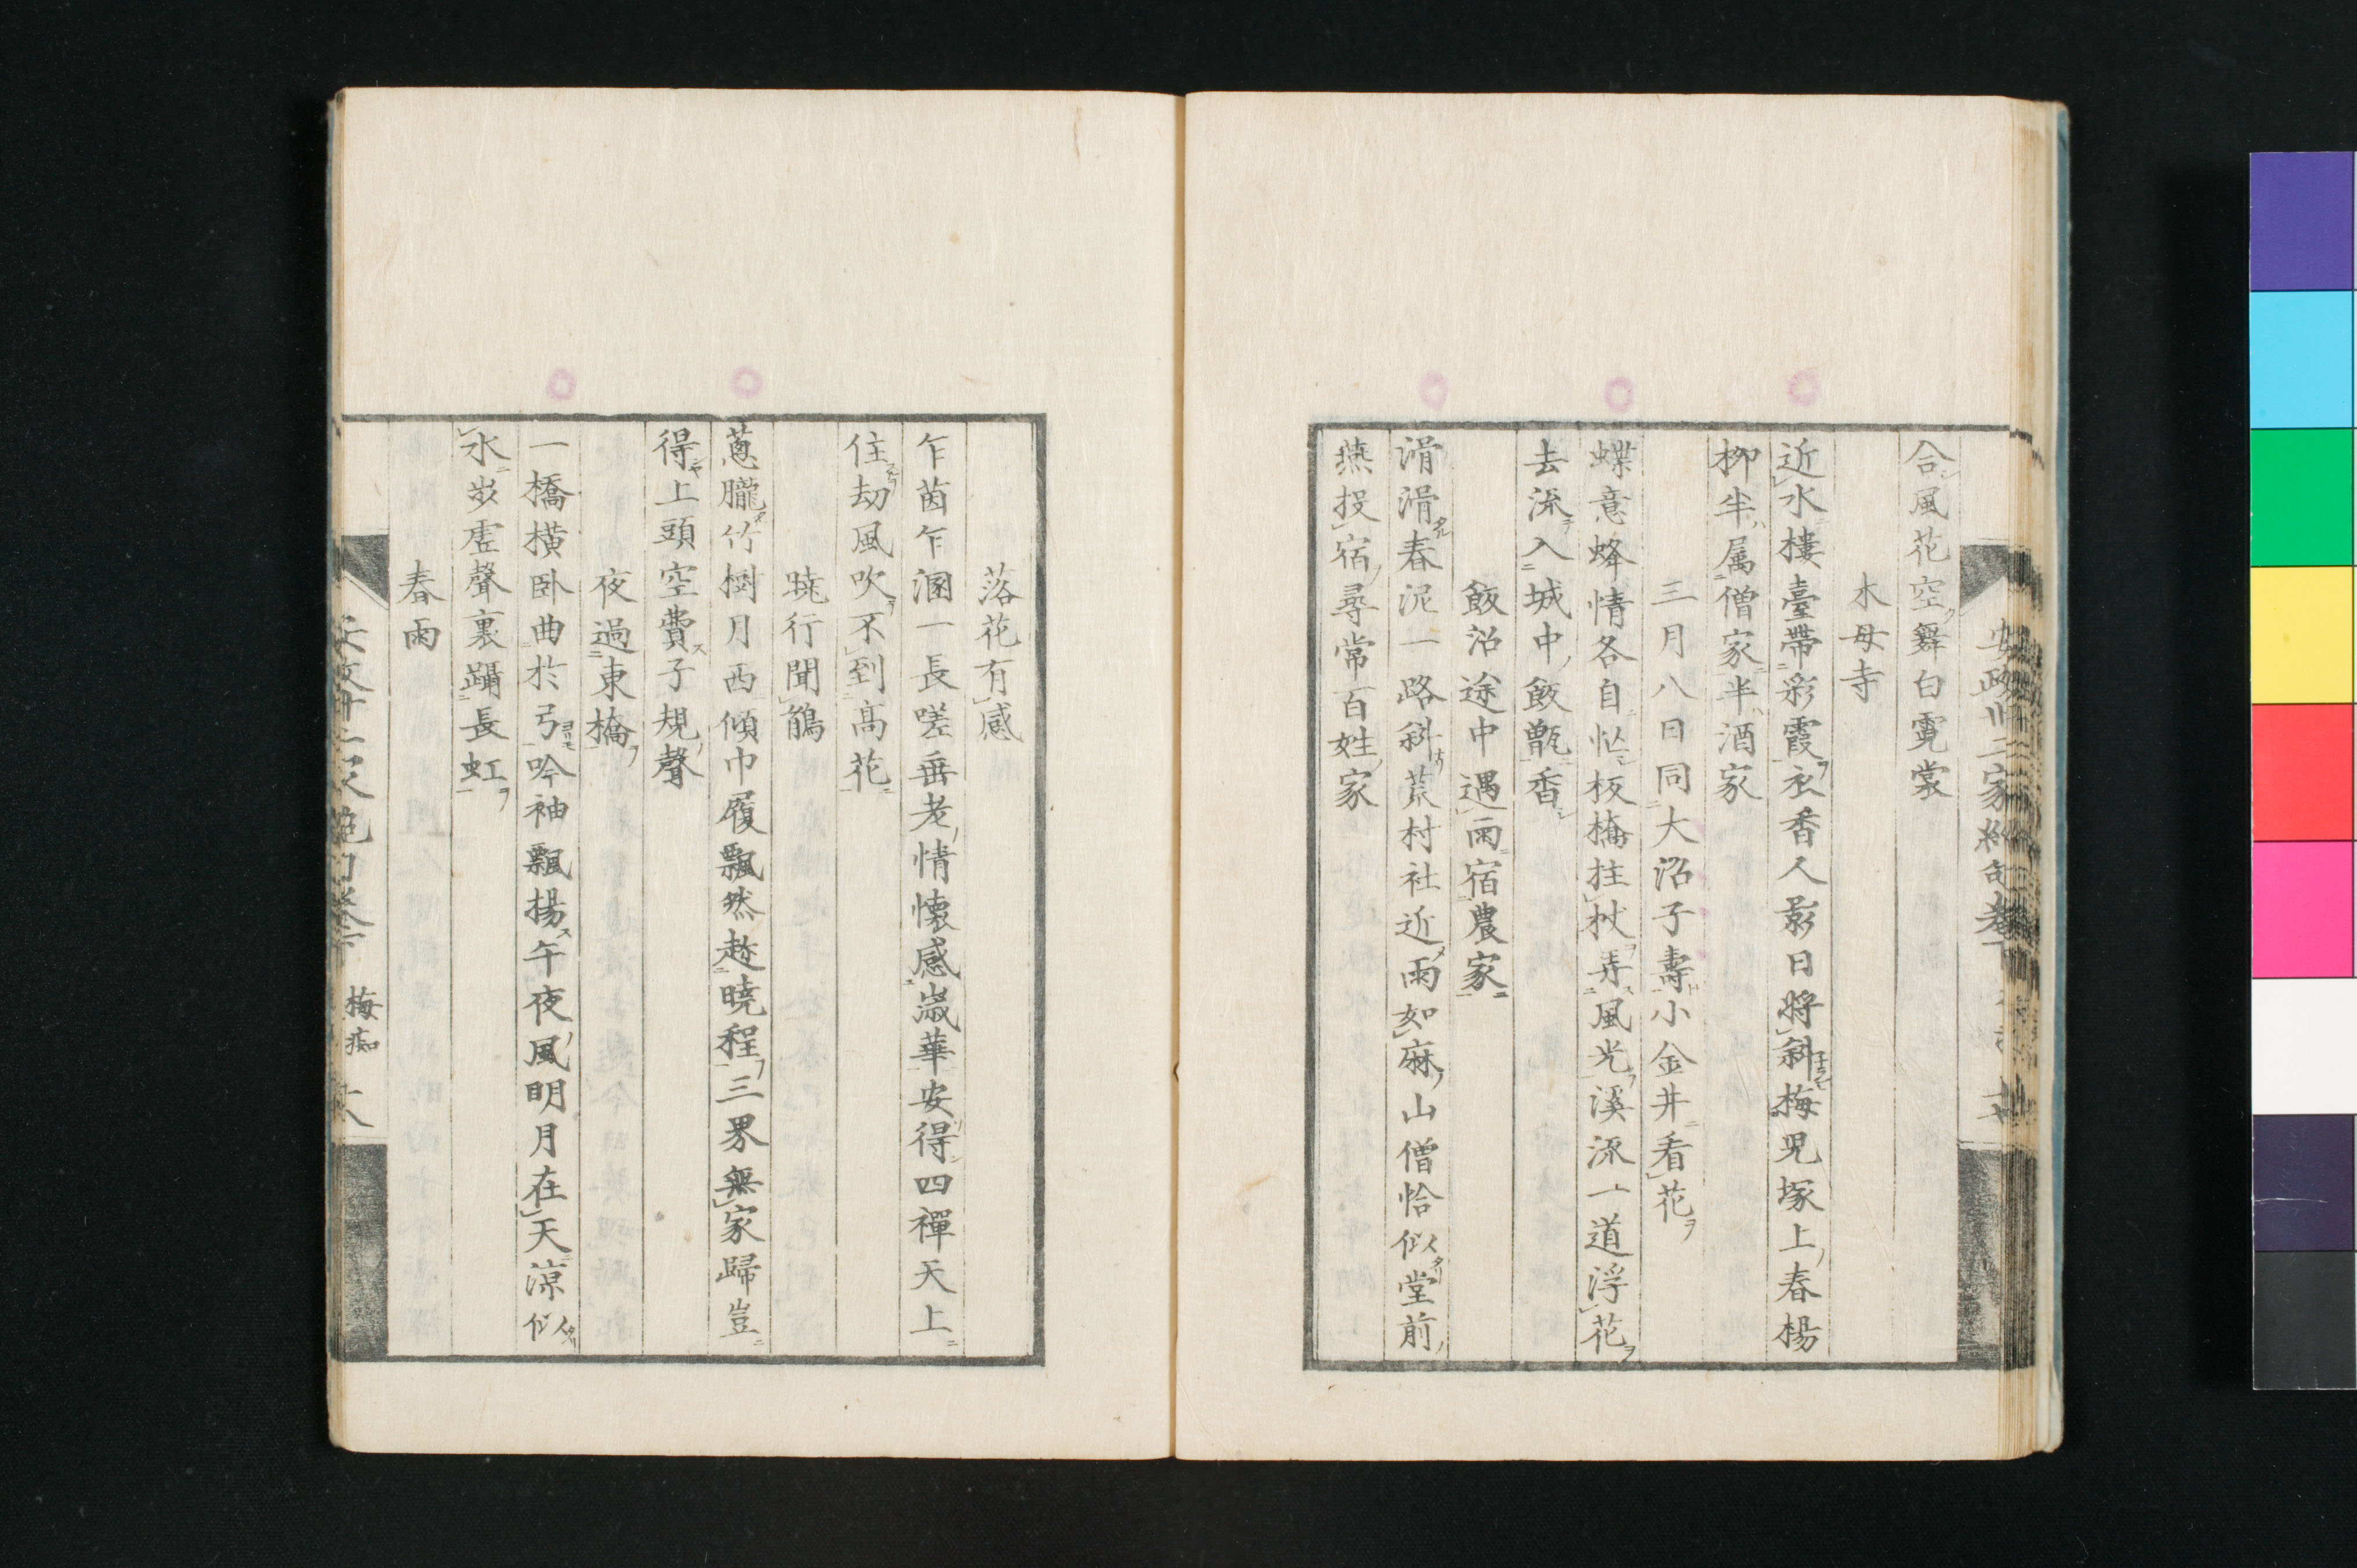 合風花空舞白霓裳
木母寺
近水樓臺帶彩霞衣香人影日將斜梅児塚上春楊
柳半属僧家半酒家
三月八日同大沼子壽小金井看花
蝶意蜂情各自忙板橋拄杖弄風光溪流一道浮花
去流入城中飯甑香
飯沼途中遇雨宿農家
滑滑春泥一路斜荒村社近雨如麻山僧恰似堂前
燕投宿尋常百姓家
落花有感
乍茵乍溷一長嗟垂老情懷感歳華安得四禪天上
住劫風吹不到高花
曉行聞鵑
蔥朧竹樹月西傾巾履飄然趁曉程三界無家歸豈
得上頭空費子規聲
夜過東橋
一橋橫臥曲於弓吟袖飄揚午夜風明月在天涼似
水歩虛聲裏躡長虹
春雨
梅癡